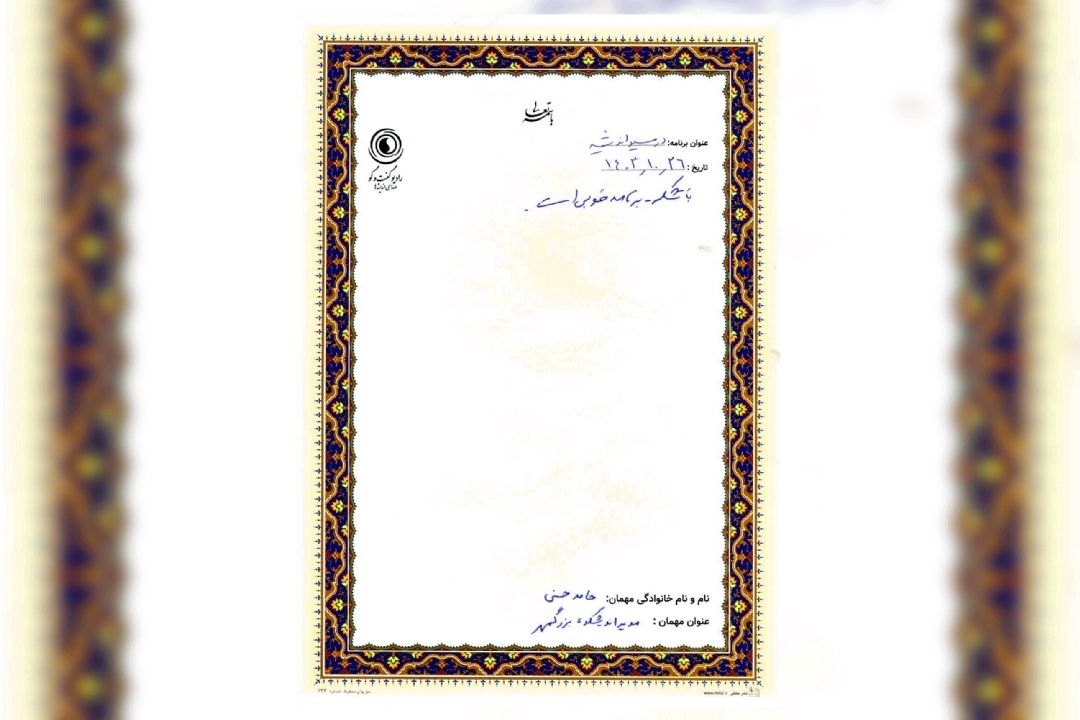 باسمه تعالی
رادیو گفت و گو
صدای اندیشه‌ها
عنوان برنامه: در مسیر اندیشه
تاریخ: ۱۴۰۳/۱۰/۲۶
با تشکر - برنامه خوبی است.
نام و نام خانوادگی مهمان: حامد حسنی
عنوان مهمان : مدیر اندیشکده بزرگمهر